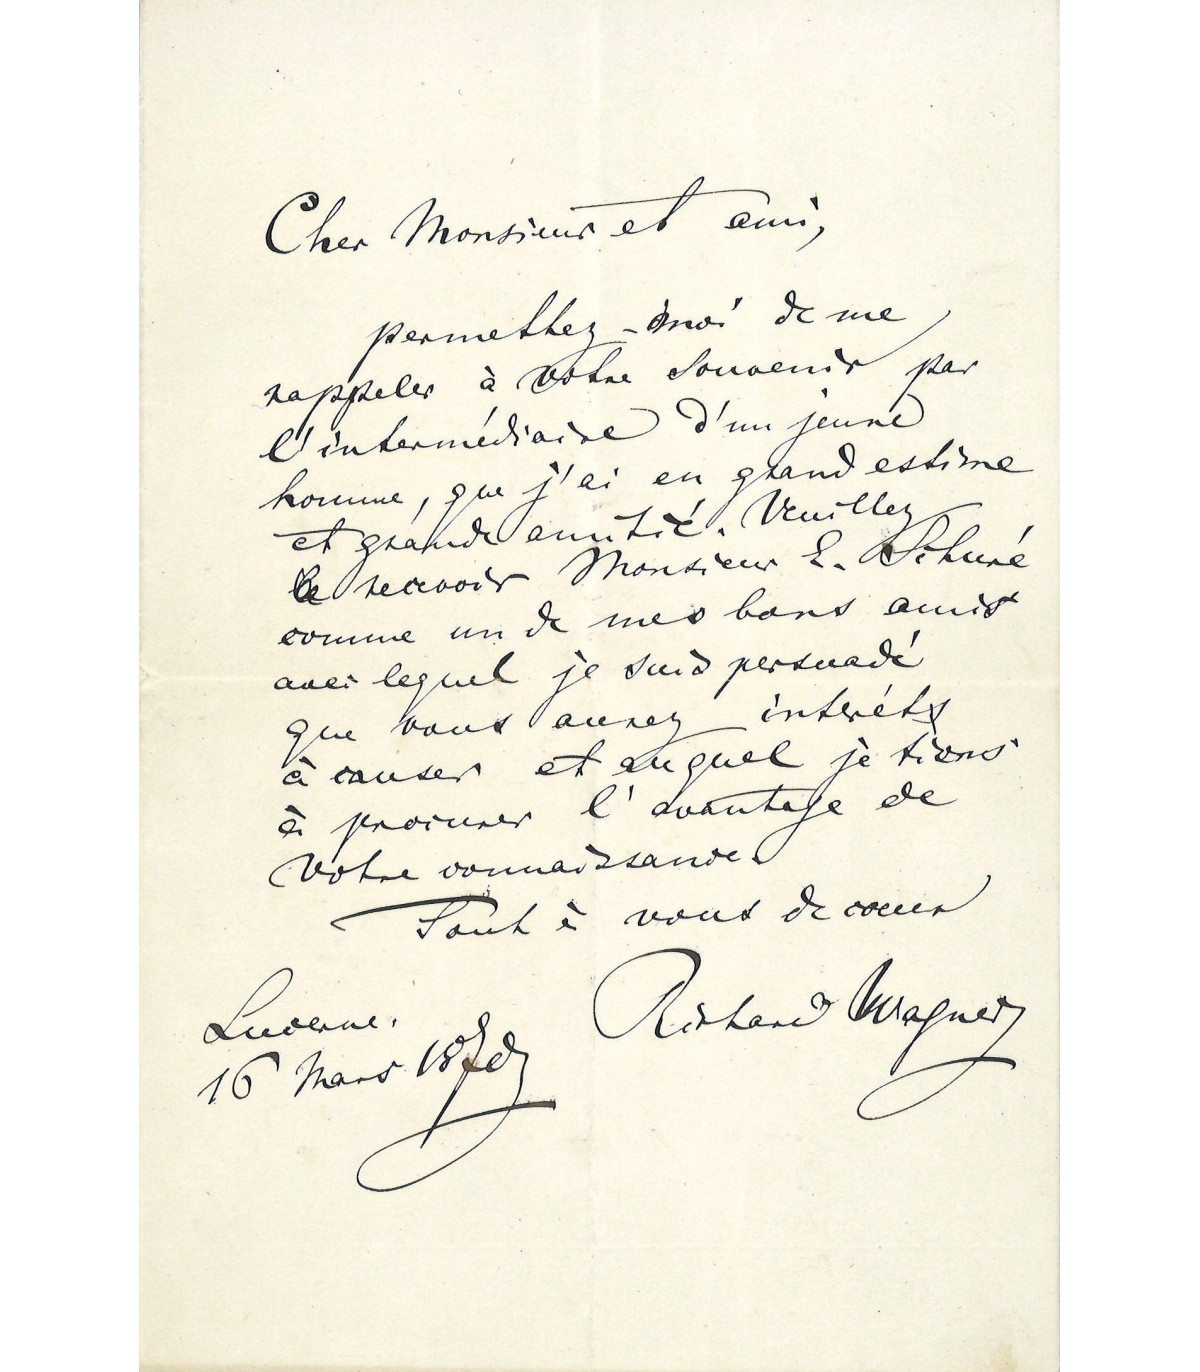 Cher Monsieur et ami,
permettez-moi de me
rappeler à votre souvenir par
l'intermédiaire d'un jeune
homme, que j'ai en grand estime
et grande amitié. Veuillez
recevoir Monsieur E. Schuré
comme un de mes bons amis
avec lequel je suis persuadé
que vous aurez intérêt
à causer et auquel je tiens
à procurer l'avantage de
votre connaissance.
Tout à vous de cœur
Richard Wagner
Lucerne.
16 Mars 1870